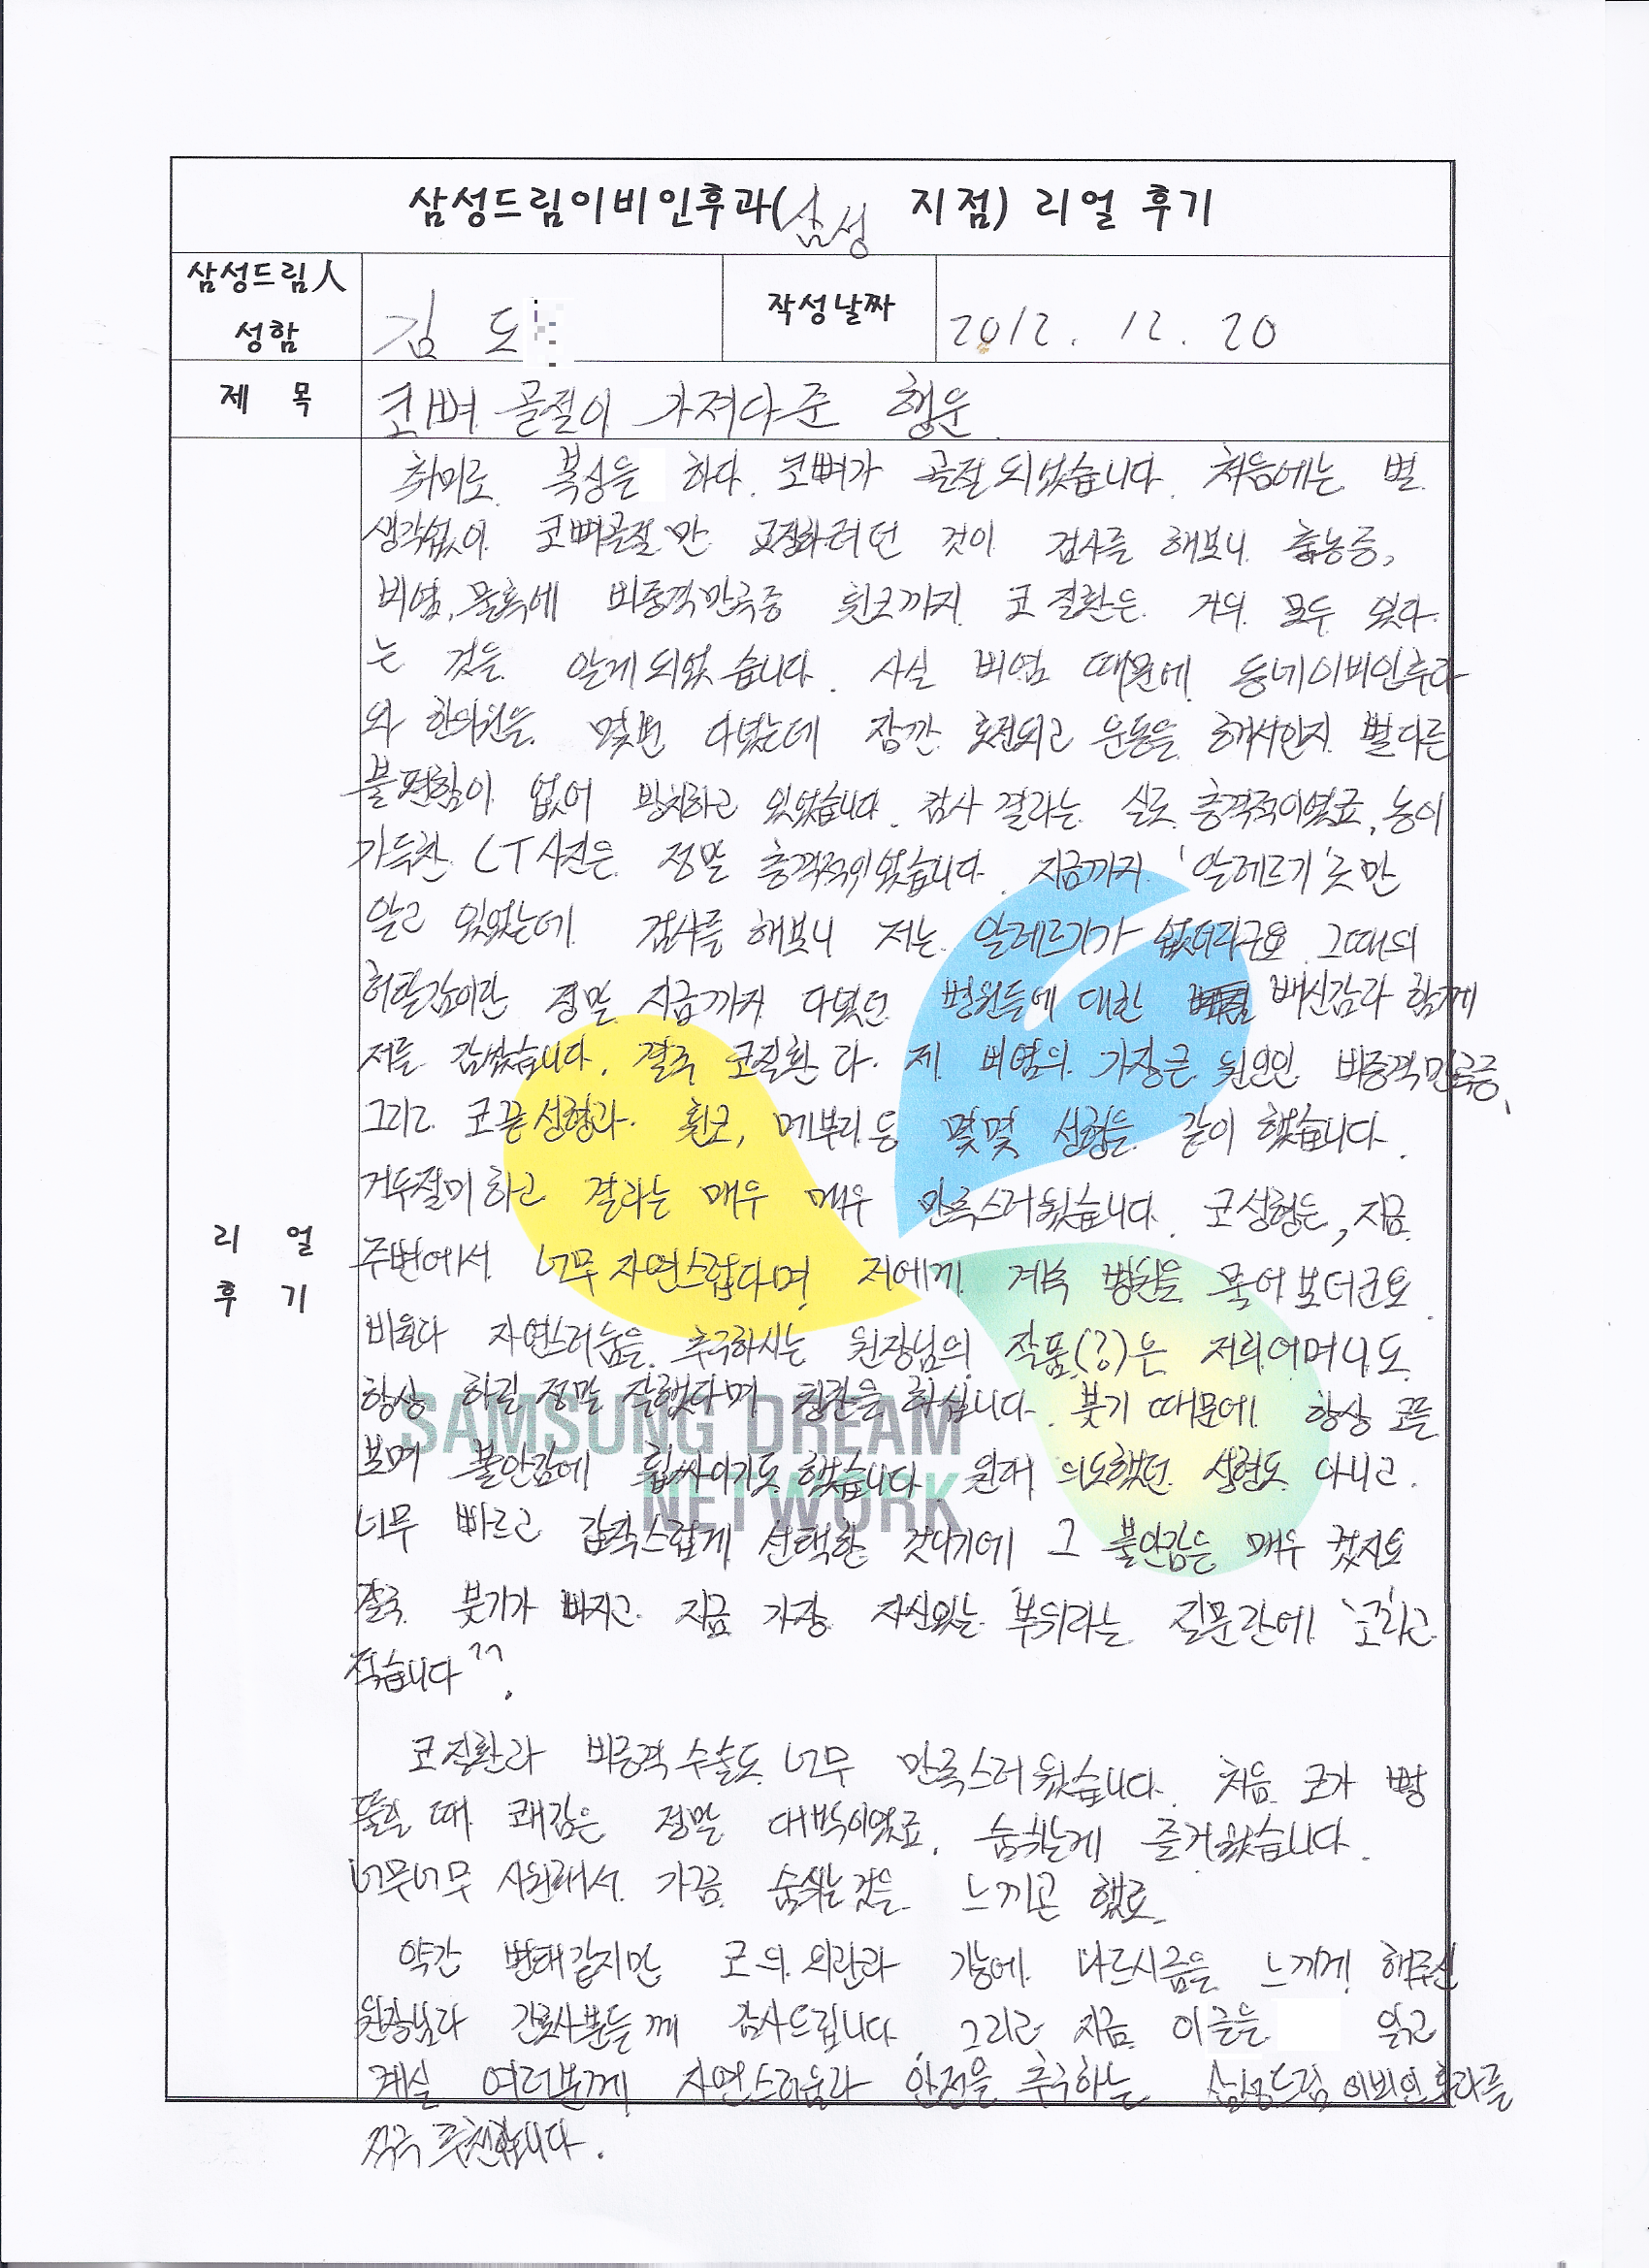 삼성드림이비인후과(삼성 지점) 리얼 후기
삼성드림人
성함
김 도
작성날짜
2012. 12. 20
제 목
코뼈 골절이 가져다준 행운
취미로 복싱을 하다 코뼈가 골절되었습니다. 처음에는 별
생각없이 코뼈골절만 교정하려던 것이 검사를 해보니 축농증,
비염, 물혹에 비중격만곡증 휜코까지 코 질환은 거의 모두 있다
는 것을 알게되었습니다. 사실 비염 때문에 동네이비인후과
와 한의원을 몇번 다녔는데 잠깐 호전되고 운동을 해서인지 별다른
불편함이 없어 방치하고 있었습니다. 검사 결과는 실로 충격적이였죠, 농이
가득찬 CT사진은 정말 충격적이였습니다. 지금까지 '알레르기'로만
알고 있었는데 검사를 해보니 저는 알레르기가 없더라구요 그때의
허탈감이란 정말 지금까지 다녔던 병원들에 대한 배신감과 함께
저를 감쌌습니다. 결국 코질환과 제 비염의 가장큰 원인인 비중격만곡증,
그리고 코끝성형과 휜코, 메부리 등 몇몇 성형을 같이 했습니다.
거두절미하고 결과는 매우 매우 만족스러웠습니다. 코성형은, 지금
주변에서 너무 자연스럽다며 저에게 계속 병원을 물어보더군요.
비웠다 자연스러움을 추구하시는 원장님의 작품(?)은 저희어머니도
항상 하길 정말 잘했다며 칭찬을 하십니다. 붓기 때문에 항상 코를
보며 불안감에 휩싸이기도 했습니다. 원래 의도했던 성형도 아니고.
너무 빠르고 갑작스럽게 선택한 것이기에 그 불안감은 매우 컸지요
결국 붓기가 빠지고 지금 가장 자신있는 부위라는 질문란에 '코'라고
적습니다^^.
코질환과 비중격 수술도 너무 만족스러웠습니다. 처음 코가 뻥
뚫릴 때 쾌감은 정말 대박이였죠, 숨쉬는게 즐거웠습니다.
너무너무 시원해서 가끔 숨쉬는것을 느끼곤 했죠,
약간 변태같지만 코의 외관과 기능에 나르시즘을 느끼게 해주신
원장님과 간호사분들께 감사드립니다. 그리고 지금 이글을 읽고
계실 여러분께 자연스러움과 안전을 추구하는 삼성드림이비인후과를
적극 추천합니다.
리 얼
후 기
SAMSUNG DREAM
NETWORK